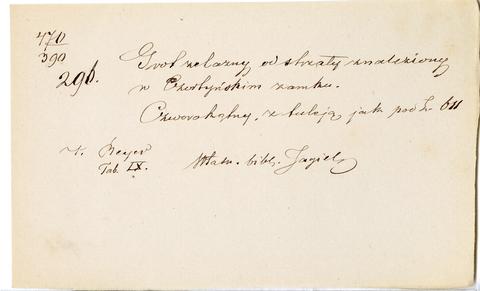 470
390
296.
Grot żelazny od strzały znaleziony
w Czertyńskim zamku.
Czworokątny, z tuleją jak pod L. 611
K. Beyer
Tab. LX.
Własn. bibl. Jagiel.